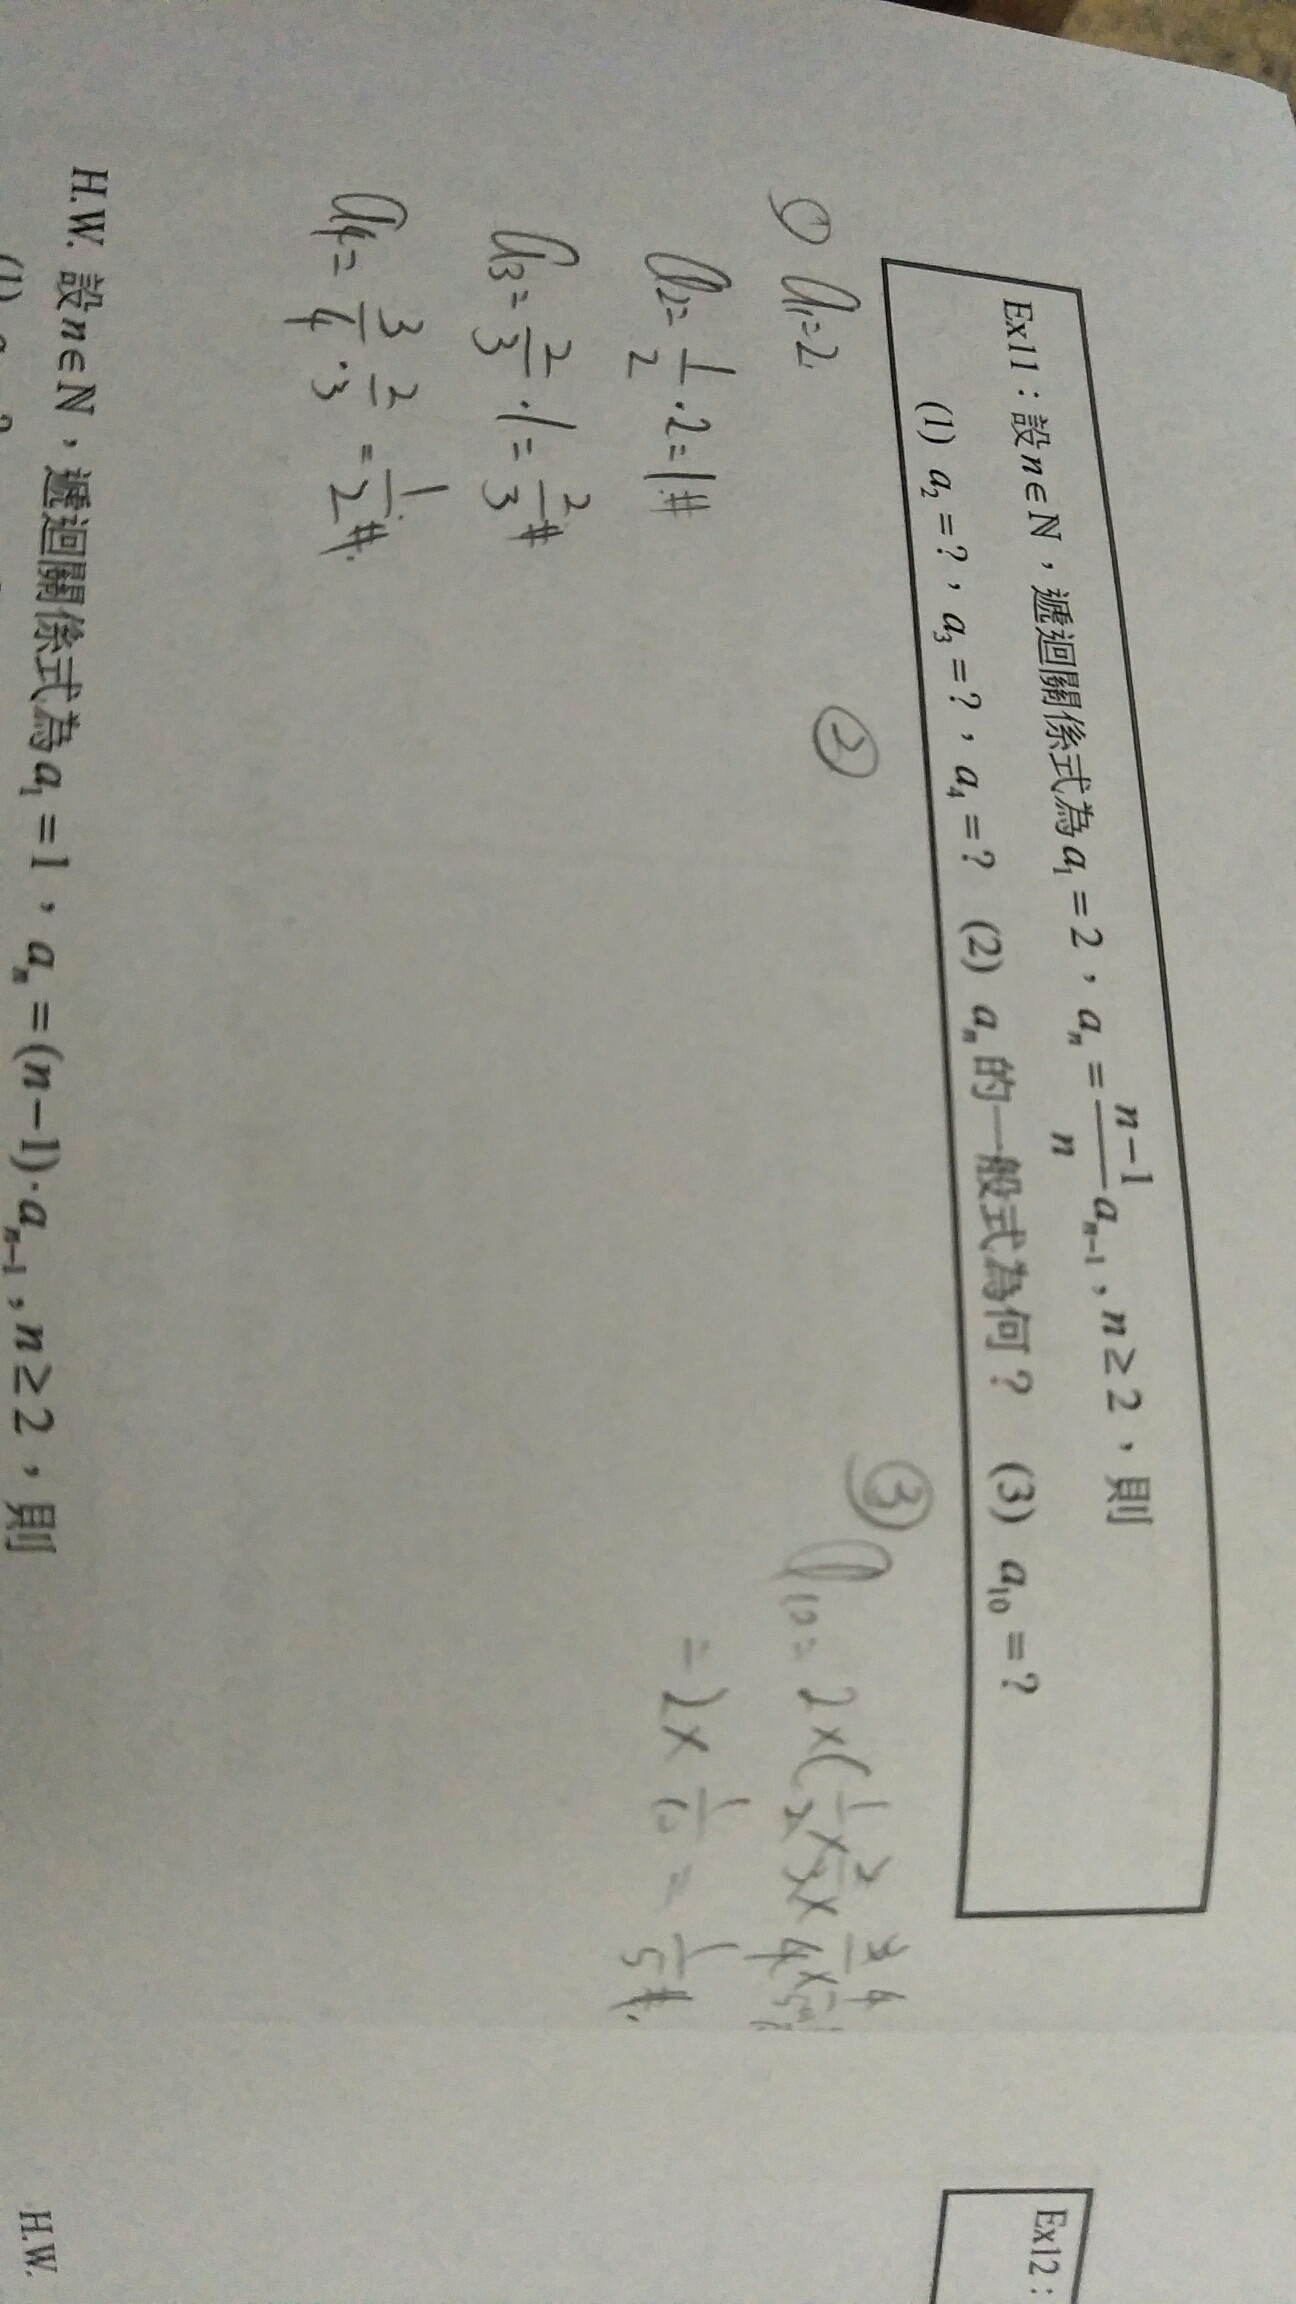 Ex11：設n∈N，遞迴關係式為a₁=2，aₙ=\frac{n-1}{n}aₙ₋₁, n≥2，則
(1) a₂=?，a₃=?，a₄=? (2) aₙ的一般式為何? (3) a₁₀=?
① a₁=2
a₂=\frac{1}{2}·2=1#
a₃=\frac{2}{3}·1=\frac{2}{3}#
a₄=\frac{3}{4}·\frac{2}{3}=\frac{1}{2}#
②
③ a₁₀=2×(\frac{1}{2}×\frac{2}{3}×\frac{3}{4}×\frac{4}{5}
=2×\frac{1}{10}=\frac{1}{5}#
H.W. 設n∈N，遞迴關係式為a₁=1，aₙ=(n-1)·aₙ₋₁, n≥2，則
(1)
Ex12：
H.W.